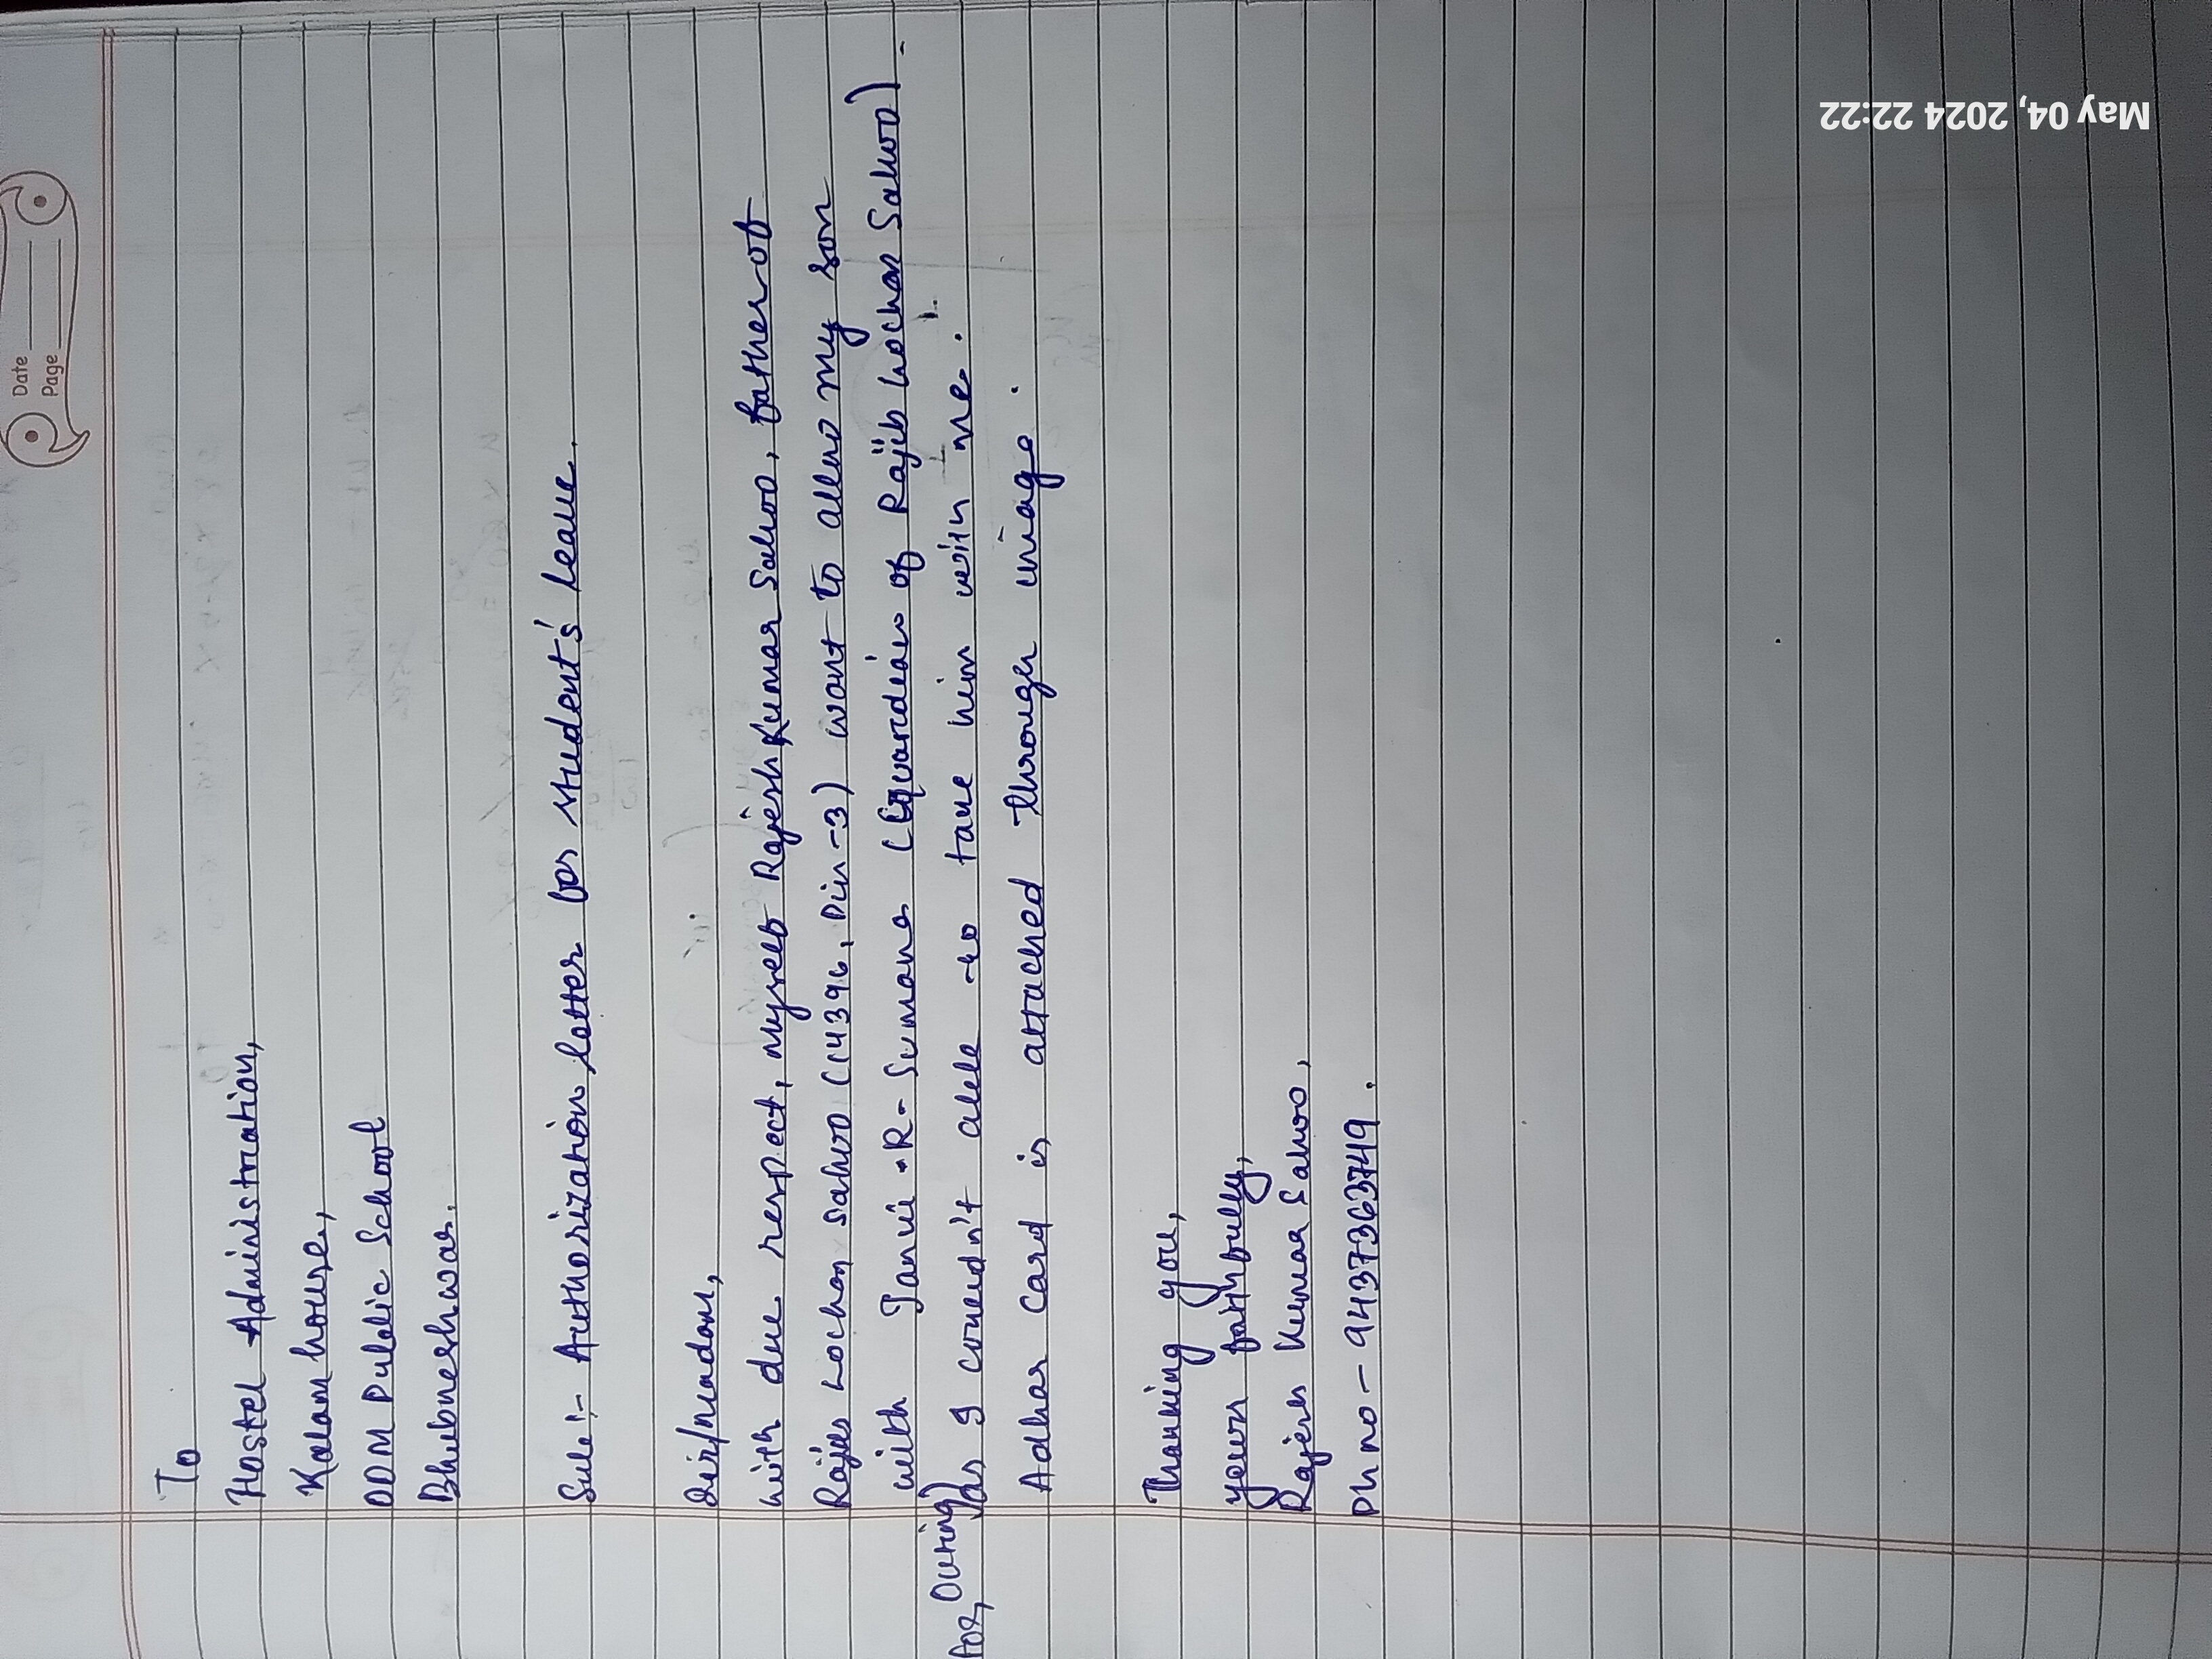 Date
Page
To
Hostel Administration,
Kalam house,
ODM Public School
Bhubneshwar.
Sub:- Authorization letter for student's leave.
Sir/madam,
with due respect, myself Rajesh Kumar Sahoo, father of
Rajib Lochan Sahoo (14396, Div-3) want to allow my son
with R. Sumans (Guardian of Rajib Lochan Sahoo)
(for, outing) as I couldn't able to take him with me.
Adhar card is attached through image.
Thanking you,
yours faithfully,
Rajesh Kumar Sahoo,
Ph no - 9437363749.
May 04, 2024 22:22